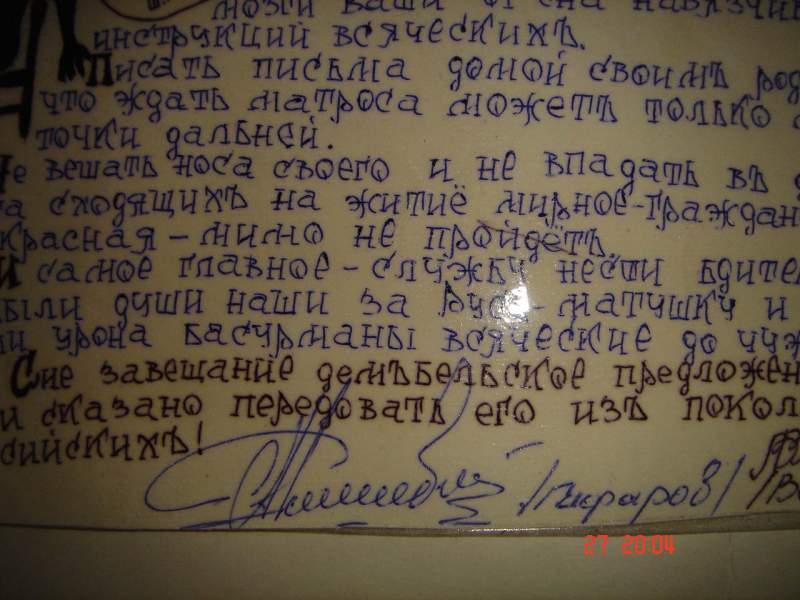 мозги ваши от сна навязчив
инструкций всяческихъ.
Писать письма домой своимъ род
что ждать матроса можетъ только с
точки дальней.
Не вешать носа своего и не впадать въ
сходящихъ на житиё мирное-граждан
красная-мимо не пройдётъ.
И самое главное-службу нести бдител
были души наши за Русь матушку и
урона басурманы всяческие до чуж
Сие завещание демъбельское предложен
и сказано передовать его изъ покол
сийскихъ!
27 20:04